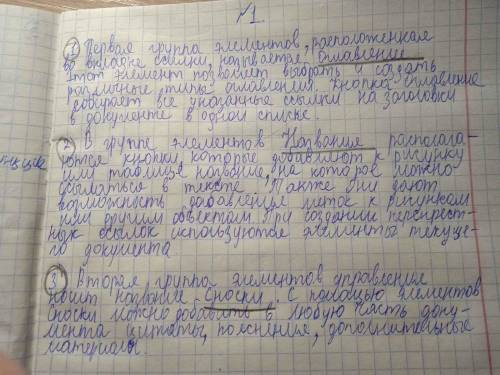 №1.
1 Первая группа элементов, расположенная
во вкладке ссылки, называется оглавление.
Этот элемент позволяет выбрать и создать
различные типы оглавления. Кнопка оглавление
собирает все указанные ссылки на заголовки
в документе в одной списке.
2 В группе элементов Название располага-
ются кнопки, которые добавляют к рисунку
или таблице название, на которое можно
ссылаться в тексте. Также они дают
возможность добавления меток к рисункам
или другим объектам. При создании перекрест-
ных ссылок используются элементы текуще-
го документа
3 Вторая группа элементов управления
носит название Сноски. С помощью элементов
сноски можно добавить в любую часть доку-
мента цитаты, пояснения, дополнительные
материалы.